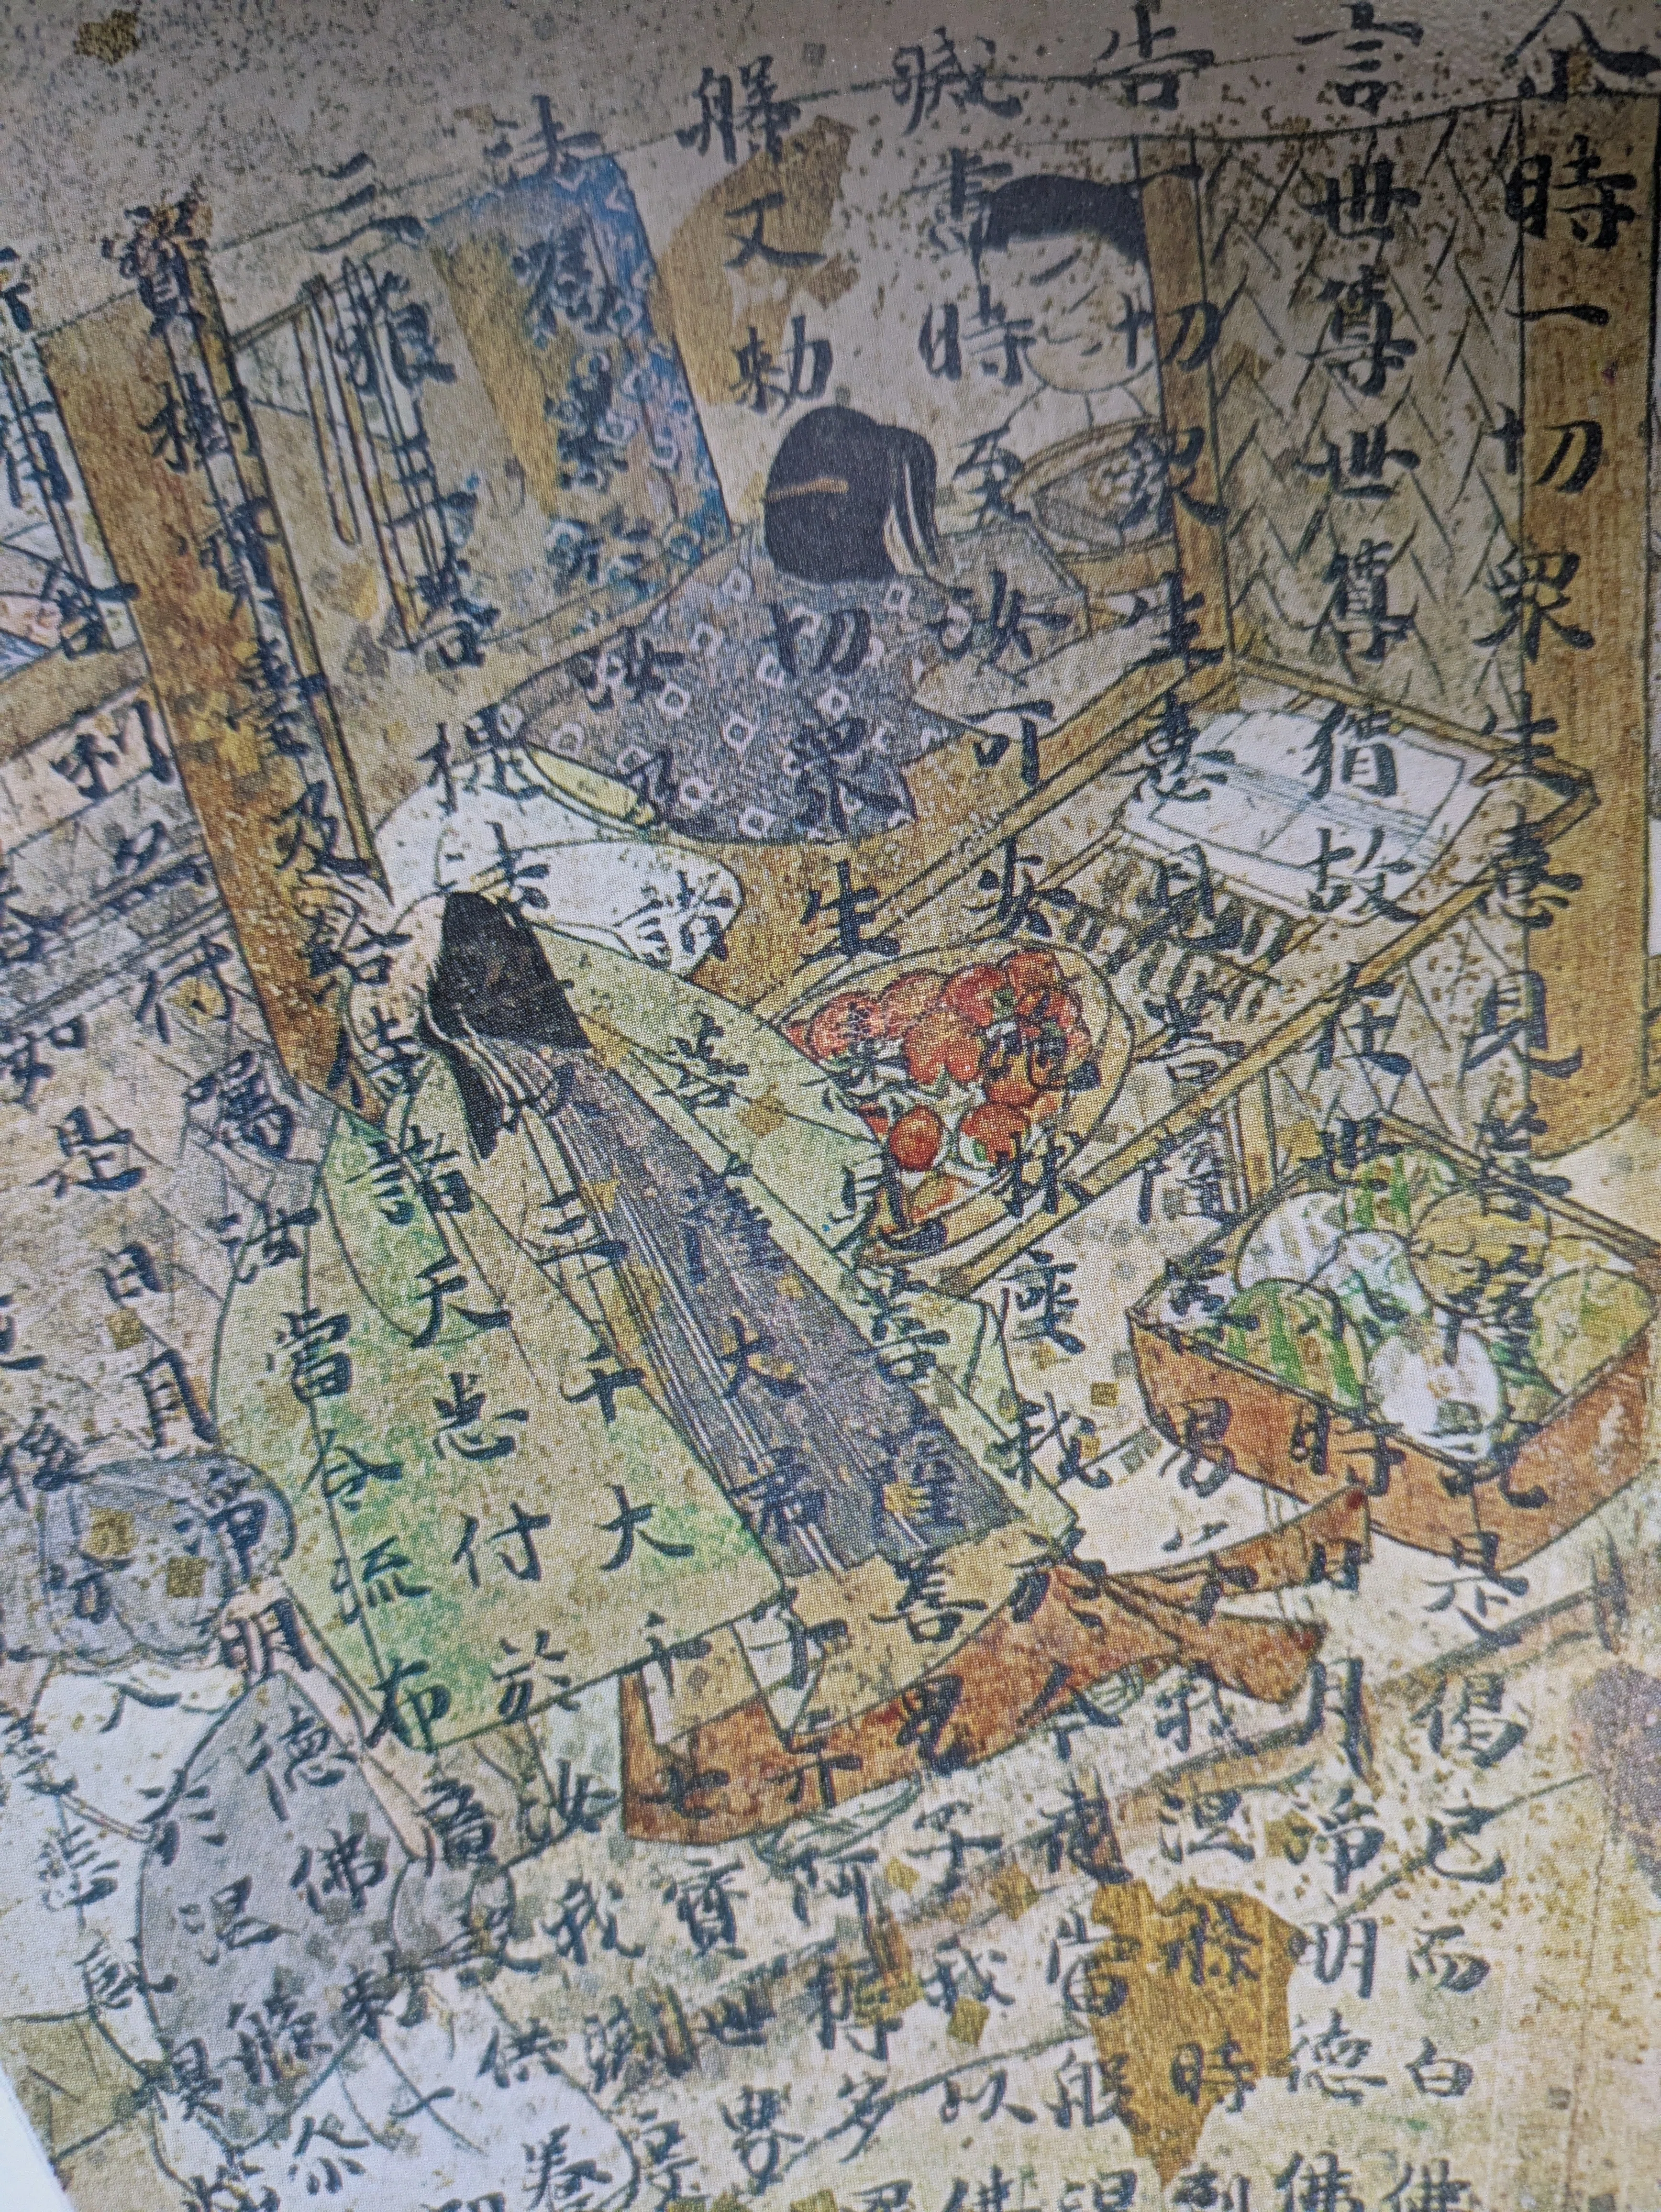 尒時一切眾生憙見菩薩說是偈已而白佛
言世尊世尊猶故在世尒時日月淨明德佛
告一切眾生憙見菩薩善男子我涅槃時到
滅盡時至汝可安施牀座我於今夜當般涅
槃又勅一切眾生憙見菩薩善男子我以佛
法囑累於汝及諸菩薩大弟子并阿耨多羅
三藐三菩提法亦以三千大千七寶世界
寶樹寶臺及給侍諸天悉付於汝我滅度
所有舍利亦付囑汝當令流布廣設供養
如是日月淨明德佛勅一
後分入於涅槃尒